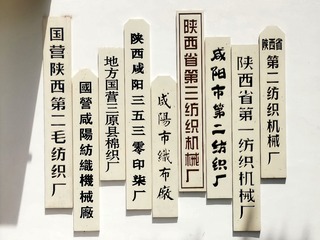 国营陕西第二毛纺织厂
國營咸陽紡織機械廠
地方国营三原县棉织厂
陕西咸阳三五三零印染厂
咸陽市織布廠
陕西省第三纺织机械厂
咸阳市第二纺织厂
陕西省第一纺织机械厂
陕西省第二纺织机械厂